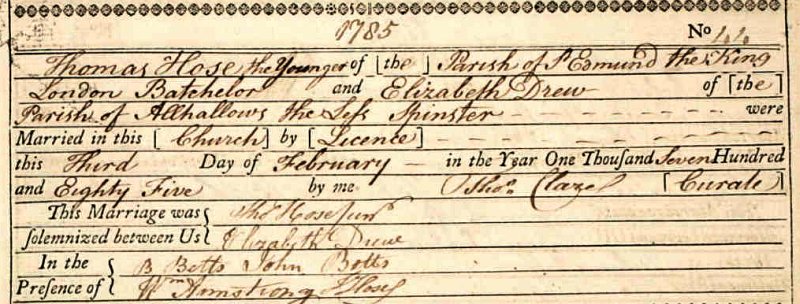 1785 No 44
Thomas Hose the Younger of [the] Parish of St Edmund the King
London Batchelor and Elizabeth Drew of [the]
Parish of Allhallows the Leſs Spinster were
Married in this [Church] by [Licence]
this Third Day of February in the Year One Thouſand Seven Hundred
and Eighty Five by me Thos. [Curate]
This Marriage was { Thos Hose junr
ſolemnized between Us { Elizabeth Drew
In the { B Botts John Botts
Preſence of { Wm Armstrong Hose